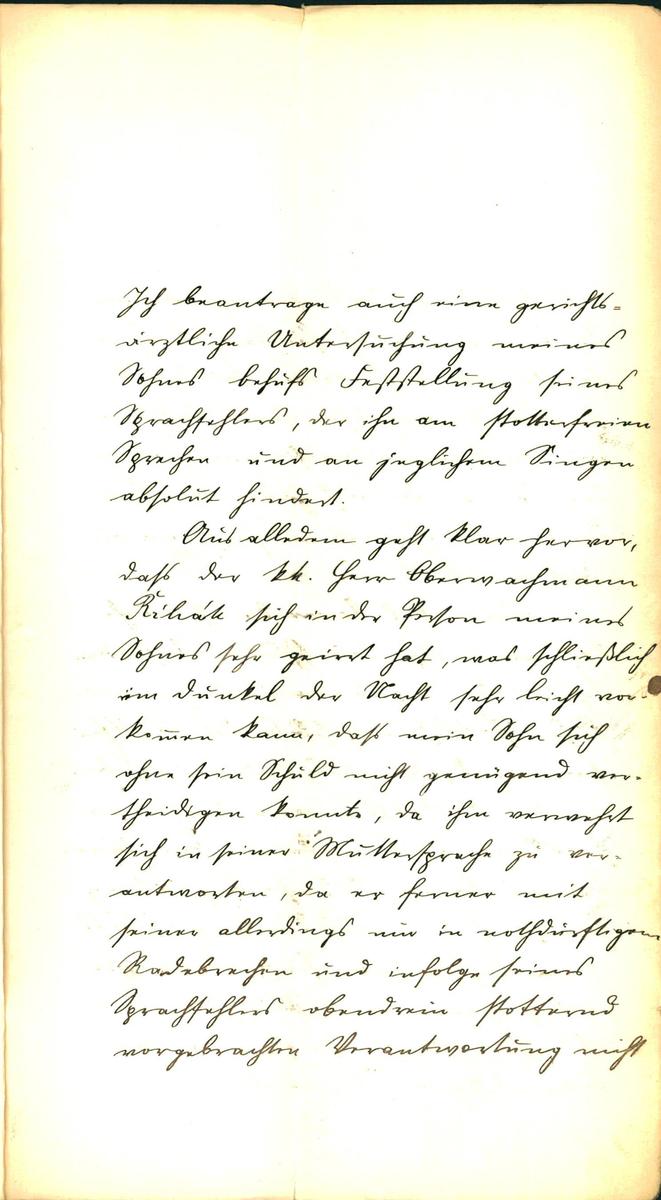 Ich beantrage auch eine gerichts-
ärztliche Untersuchung meines
Sohnes behufs Feststellung seines
Sprachfehlers, der ihn am stotterfreien
Sprechen und an jeglichem Singen
absolut hindert.
Aus alledem geht klar hervor,
dass der kk. Herr Oberwachmann
Řihák sich in der Person meines
Sohnes sehr geirrt hat, was schließlich
im Dunkel der Nacht sehr leicht vor-
kom̄en kann, dass mein Sohn sich
ohne sein Schuld nicht genügend ver-
theidigen konnte, da ihm verwehrt
sich in seiner Muttersprache zu ver-
antworten, da er ferner mit
seiner allerdings nur in nothdürftigem
Radebrechen und infolge seines
Sprachfehlers obendrein stotternd
vorgebrachten Verantwortung nicht